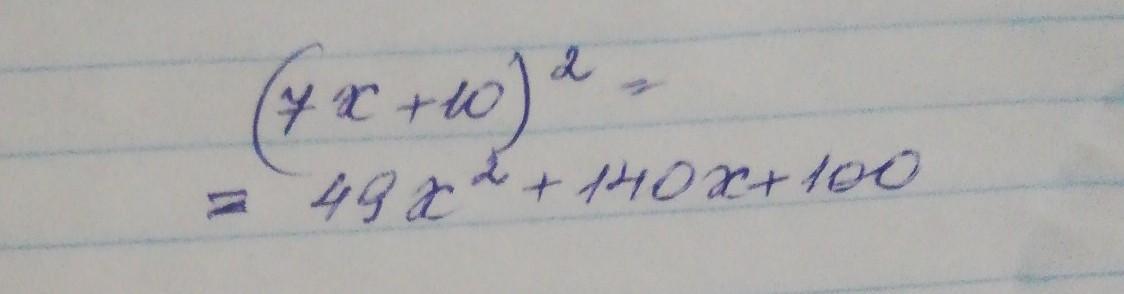 (7x+10)² =
= 49x² + 140x + 100